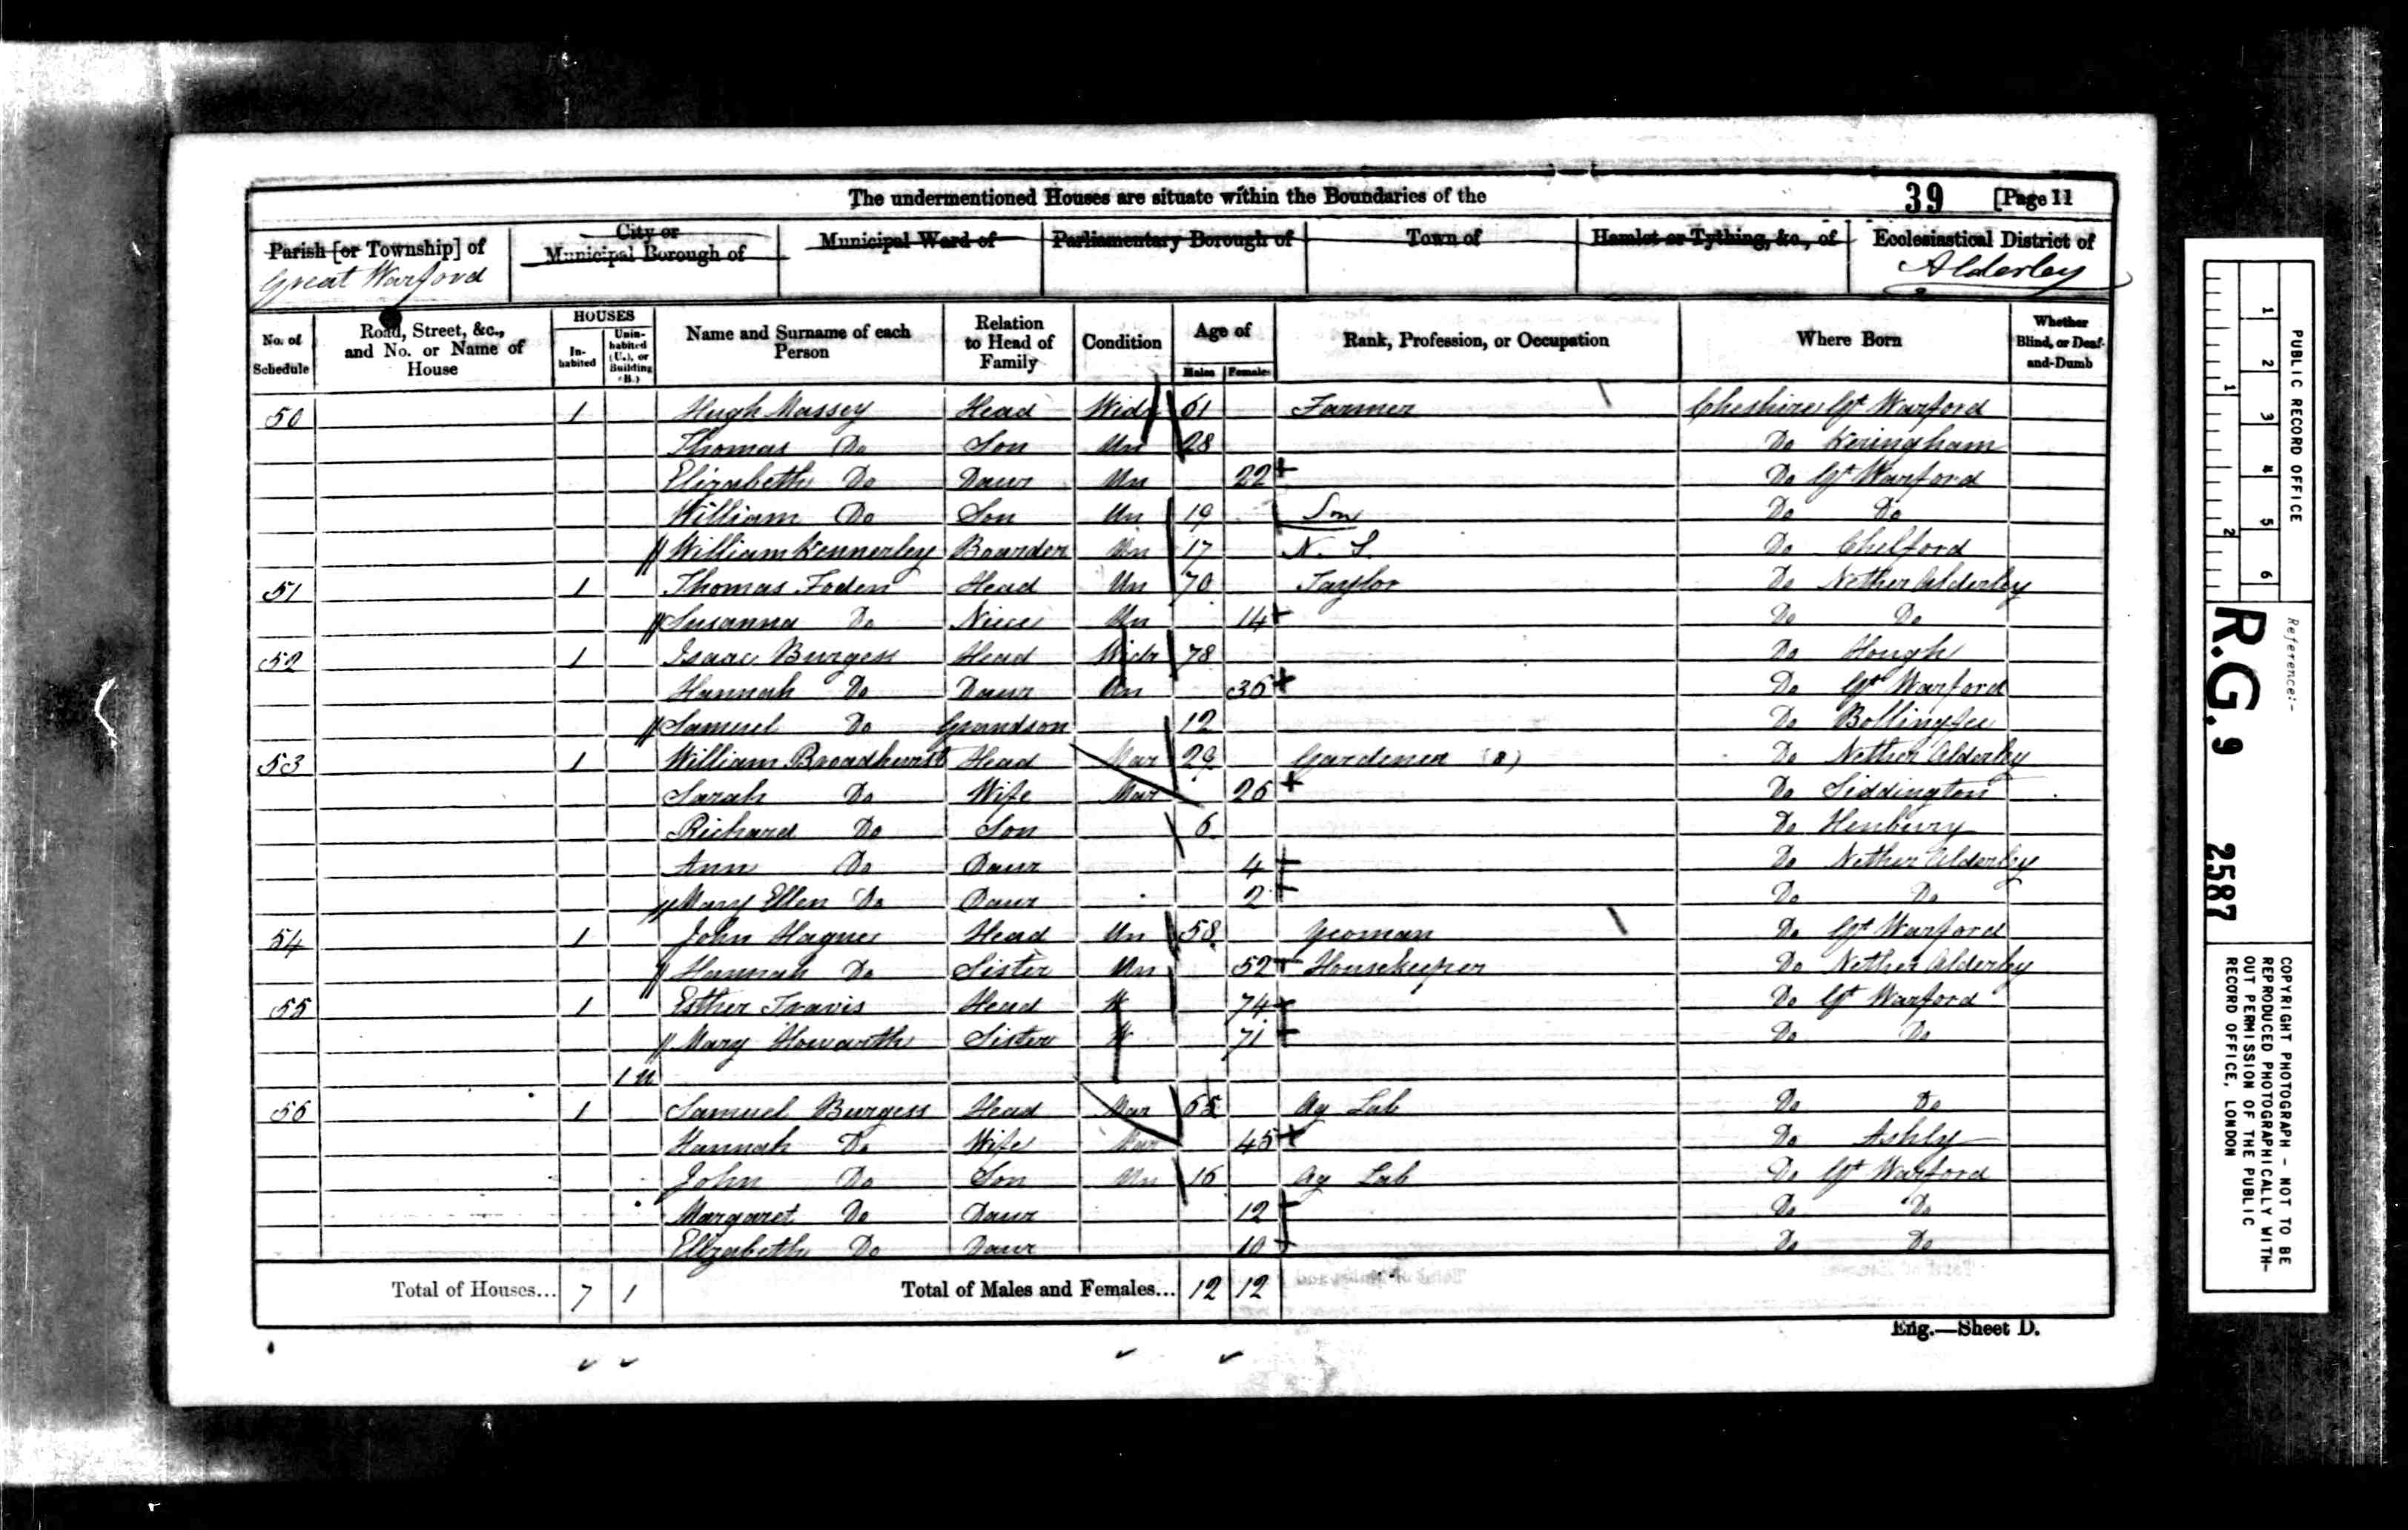 The undermentioned Houses are situate within the Boundaries of the 39 [Page 11
Parish [or Township] of City or Municipal Borough of Municipal Ward of Parliamentary Borough of Town of Hamlet or Tything, &c., of Ecclesiastical District of
Great Warford Alderley
No. of Schedule Road, Street, &c., and No. or Name of House HOUSES In-habited Unin-habited (U.), or Building (B.) Name and Surname of each Person Relation to Head of Family Condition Age of Males Females Rank, Profession, or Occupation Where Born Whether Blind, or Deaf-and-Dumb
50 1 Hugh Massey Head Widr 61 Farmer Cheshire Gt Warford
Thomas Do Son Un 28 Do Keringham
Elizabeth Do Daur Un 22 Do Gt Warford
William Do Son Un 19 Son Do Do
William Kennerley Boarder Un 17 N. S. Do Chelford
51 1 Thomas Foden Head Un 70 Taylor Do Nether Alderley
Susanna Do Niece Un 14 Do Do
52 1 Isaac Burgess Head Widr 78 Do Hough
Hannah Do Daur Un 36 Do Gt Warford
Samuel Do Grandson 12 Do Bollingfee
53 1 William Broadhurst Head Mar 29 Gardener (8) Do Nether Alderley
Sarah Do Wife Mar 26 Do Siddington
Richard Do Son 6 Do Henbury
Ann Do Daur 4 Do Nether Alderley
Mary Ellen Do Daur 2 Do Do
54 1 John Hague Head Un 58 Yeoman Do Gt Warford
Hannah Do Sister Un 52 Housekeeper Do Nether Alderley
55 1 Esther Travis Head W 74 Do Gt Warford
Mary Howarth Sister W 71 Do Do
1 U
56 1 Samuel Burgess Head Mar 65 Ag Lab Do Do
Hannah Do Wife Mar 45 Do Ashly
John Do Son Un 16 Ag Lab Do Gt Warford
Margaret Do Daur 12 Do Do
Elizabeth Do Daur 10 Do Do
Total of Houses... 7 1 Total of Males and Females... 12 12
Eng.—Sheet D.
PUBLIC RECORD OFFICE
1 2 3 4 5 6
1 2
Reference:-
R.G. 9 2587
COPYRIGHT PHOTOGRAPH - NOT TO BE
REPRODUCED PHOTOGRAPHICALLY WITH-
OUT PERMISSION OF THE PUBLIC
RECORD OFFICE, LONDON